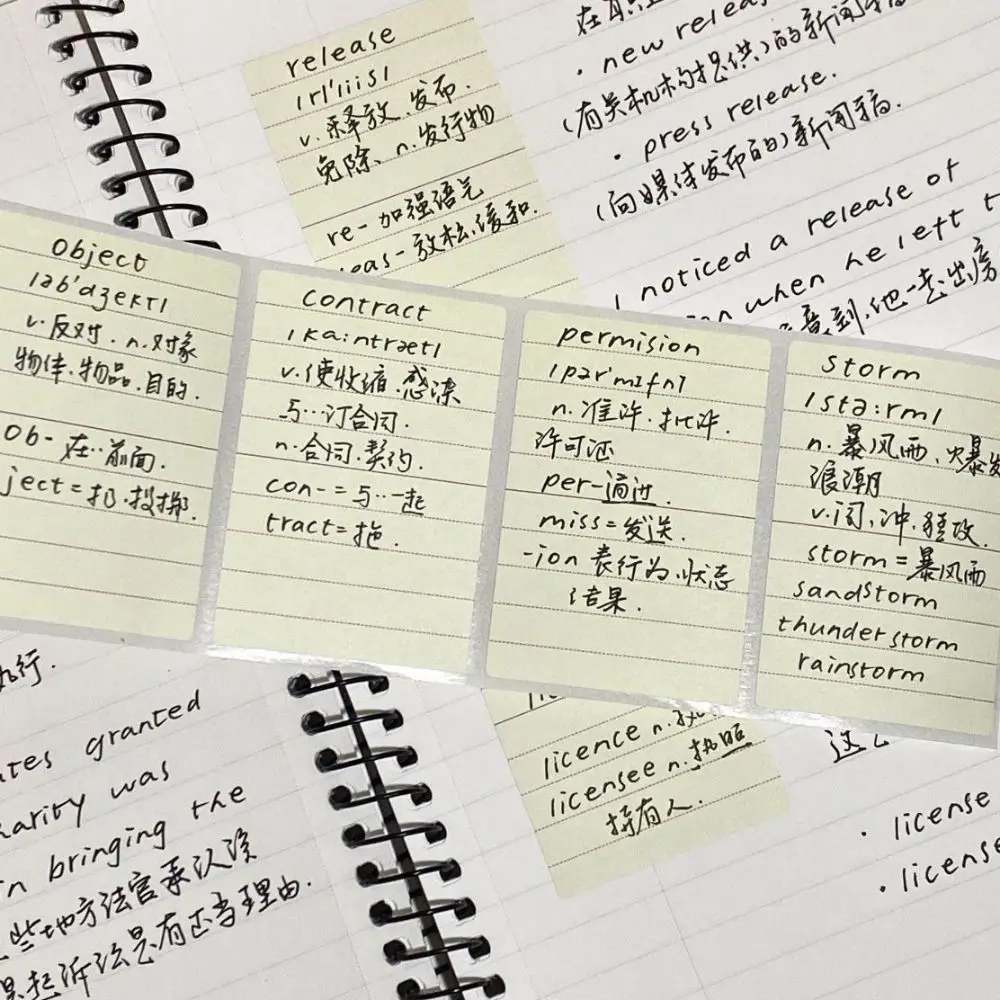 release
/rɪ'liːs/
v. 释放、发布.
免除、n. 发行物
re- 加强语气
eas- 放松、缓和.
· new relea
(有关机构提供)的新闻稿
· press release.
(向媒体发布的)新闻稿.
I noticed a release of
when he left t
意到,他一走出房
object
/əb'dʒekt/
v. 反对. n. 对象
物体. 物品. 目的.
Ob- 在··前面.
ject = 扔. 投掷.
contract
/ka:ntræt/
v. 使收缩. 感染
与··订合同.
n. 合同. 契约.
con- = 与··一起
tract = 拖.
permision
/pər'mɪʃn/
n. 准许. 批许.
许可证
per- 通过.
miss = 发送.
-ion 表行为. 状态
结果.
storm
/stɔ:rm/
n. 暴风雨、爆发
浪潮
v. 闯、冲. 猛攻.
storm = 暴风雨
sandstorm
thunderstorm
rainstorm
执行.
ates granted
harity was
n bringing the
些地方法官承认该
起诉讼是有正当理由.
licence n. 执
licensee n. 执照
持有人.
这
· license
· license